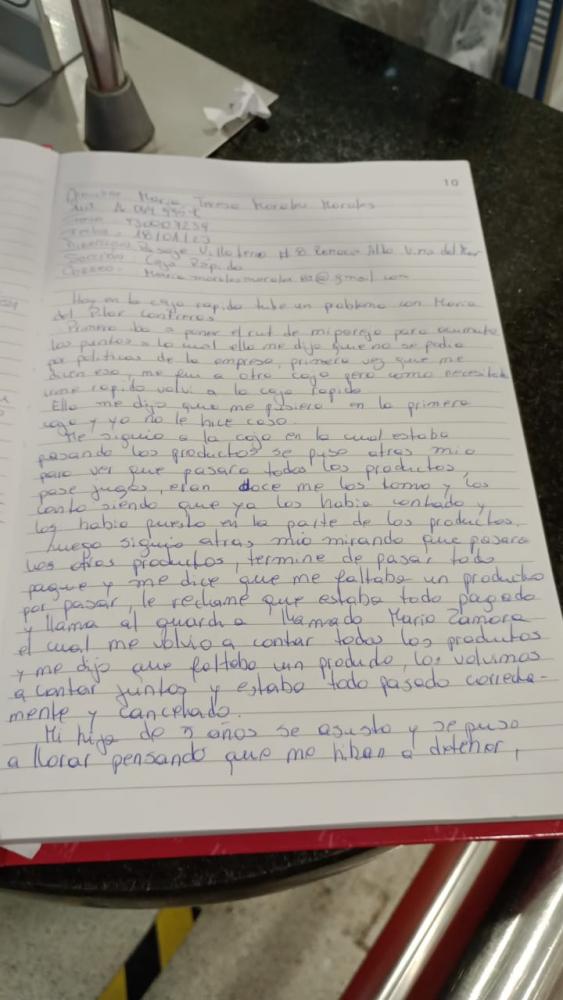 10
Nombre María Teresa Morales Morales
Rut
Fono: 930007239
Fecha: 18/01/23
Dirección Pasaje Villa Irene # 8 Renaca Alto Viña del Mar
Sección: Caja Rapida
Correo: @gmail.com
Hoy en la caja rapida tube un problema con Maria
del Pilar Contreras
Primero iba a poner el rut de mi pareja para acumular
los puntos a lo cual ella me dijo que no se podia
por politicas de la empresa, primera vez que me
dicen eso, me fui a otra caja pero como necesitaba
irme rapido volvi a la caja rapida
Ella me dijo que me pusiera en la primera
caja y yo no le hice caso.
Me siguio a la caja en la cual estaba
pasando los productos se puso atras mio
para ver que pasara todos los productos,
pase jugos, eran doce me los tomo y los
conto siendo que ya los habia contado y
los habia puesto en la parte de los productos.
Luego siguio atras mio mirando que pasara
los otros productos, termine de pasar todo
pague y me dice que me faltaba un producto
por pasar, le reclame que estaba todo pagado
y llama al guardia llamado Mario Zamora
el cual me volvio a contar todos los productos
y me dijo que faltaba un producto, los volvimos
a contar juntos y estaba todo pasado correcta-
mente y cancelado.
Mi hija de años se asusto y se puso
a llorar pensando que me hiban a detener,